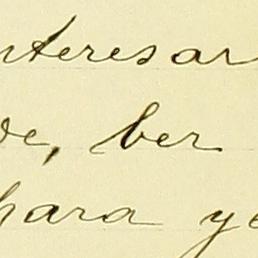 nteresar
ber
para ye